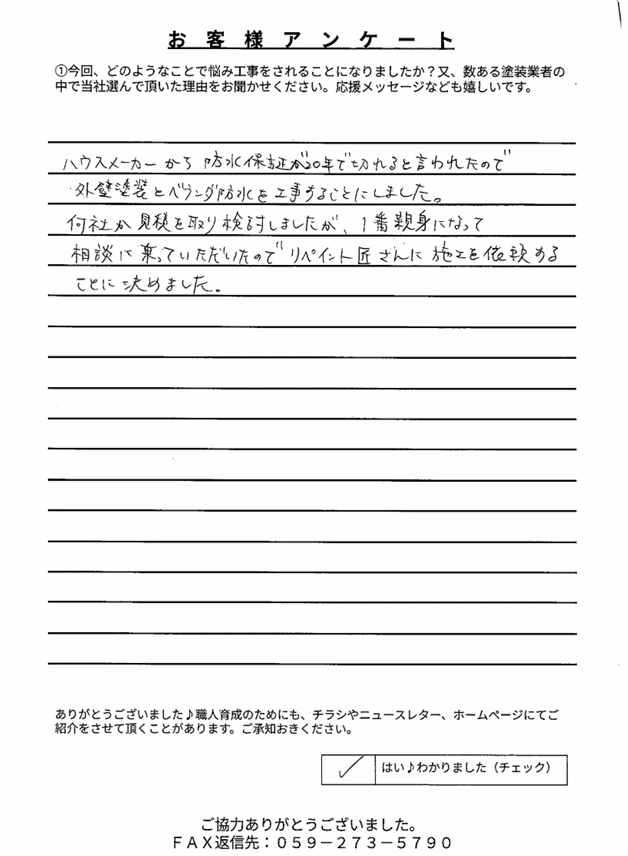 お客様アンケート
①今回、どのようなことで悩み工事をされることになりましたか？又、数ある塗装業者の
中で当社選んで頂いた理由をお聞かせください。応援メッセージなども嬉しいです。
ハウスメーカーから防水保証が20年で切れると言われたので
外壁塗装とベランダ防水を工事することにしました。
何社か見積を取り検討しましたが、1番親身になって
相談に乗っていただいたのでリペイント匠さんに施工を依頼する
ことに決めました。
ありがとうございました♪職人育成のためにも、チラシやニュースレター、ホームページにてご
紹介をさせて頂くことがあります。ご承知おきください。
✓ はい♪わかりました（チェック）
ご協力ありがとうございました。
ＦＡＸ返信先：０５９－２７３－５７９０